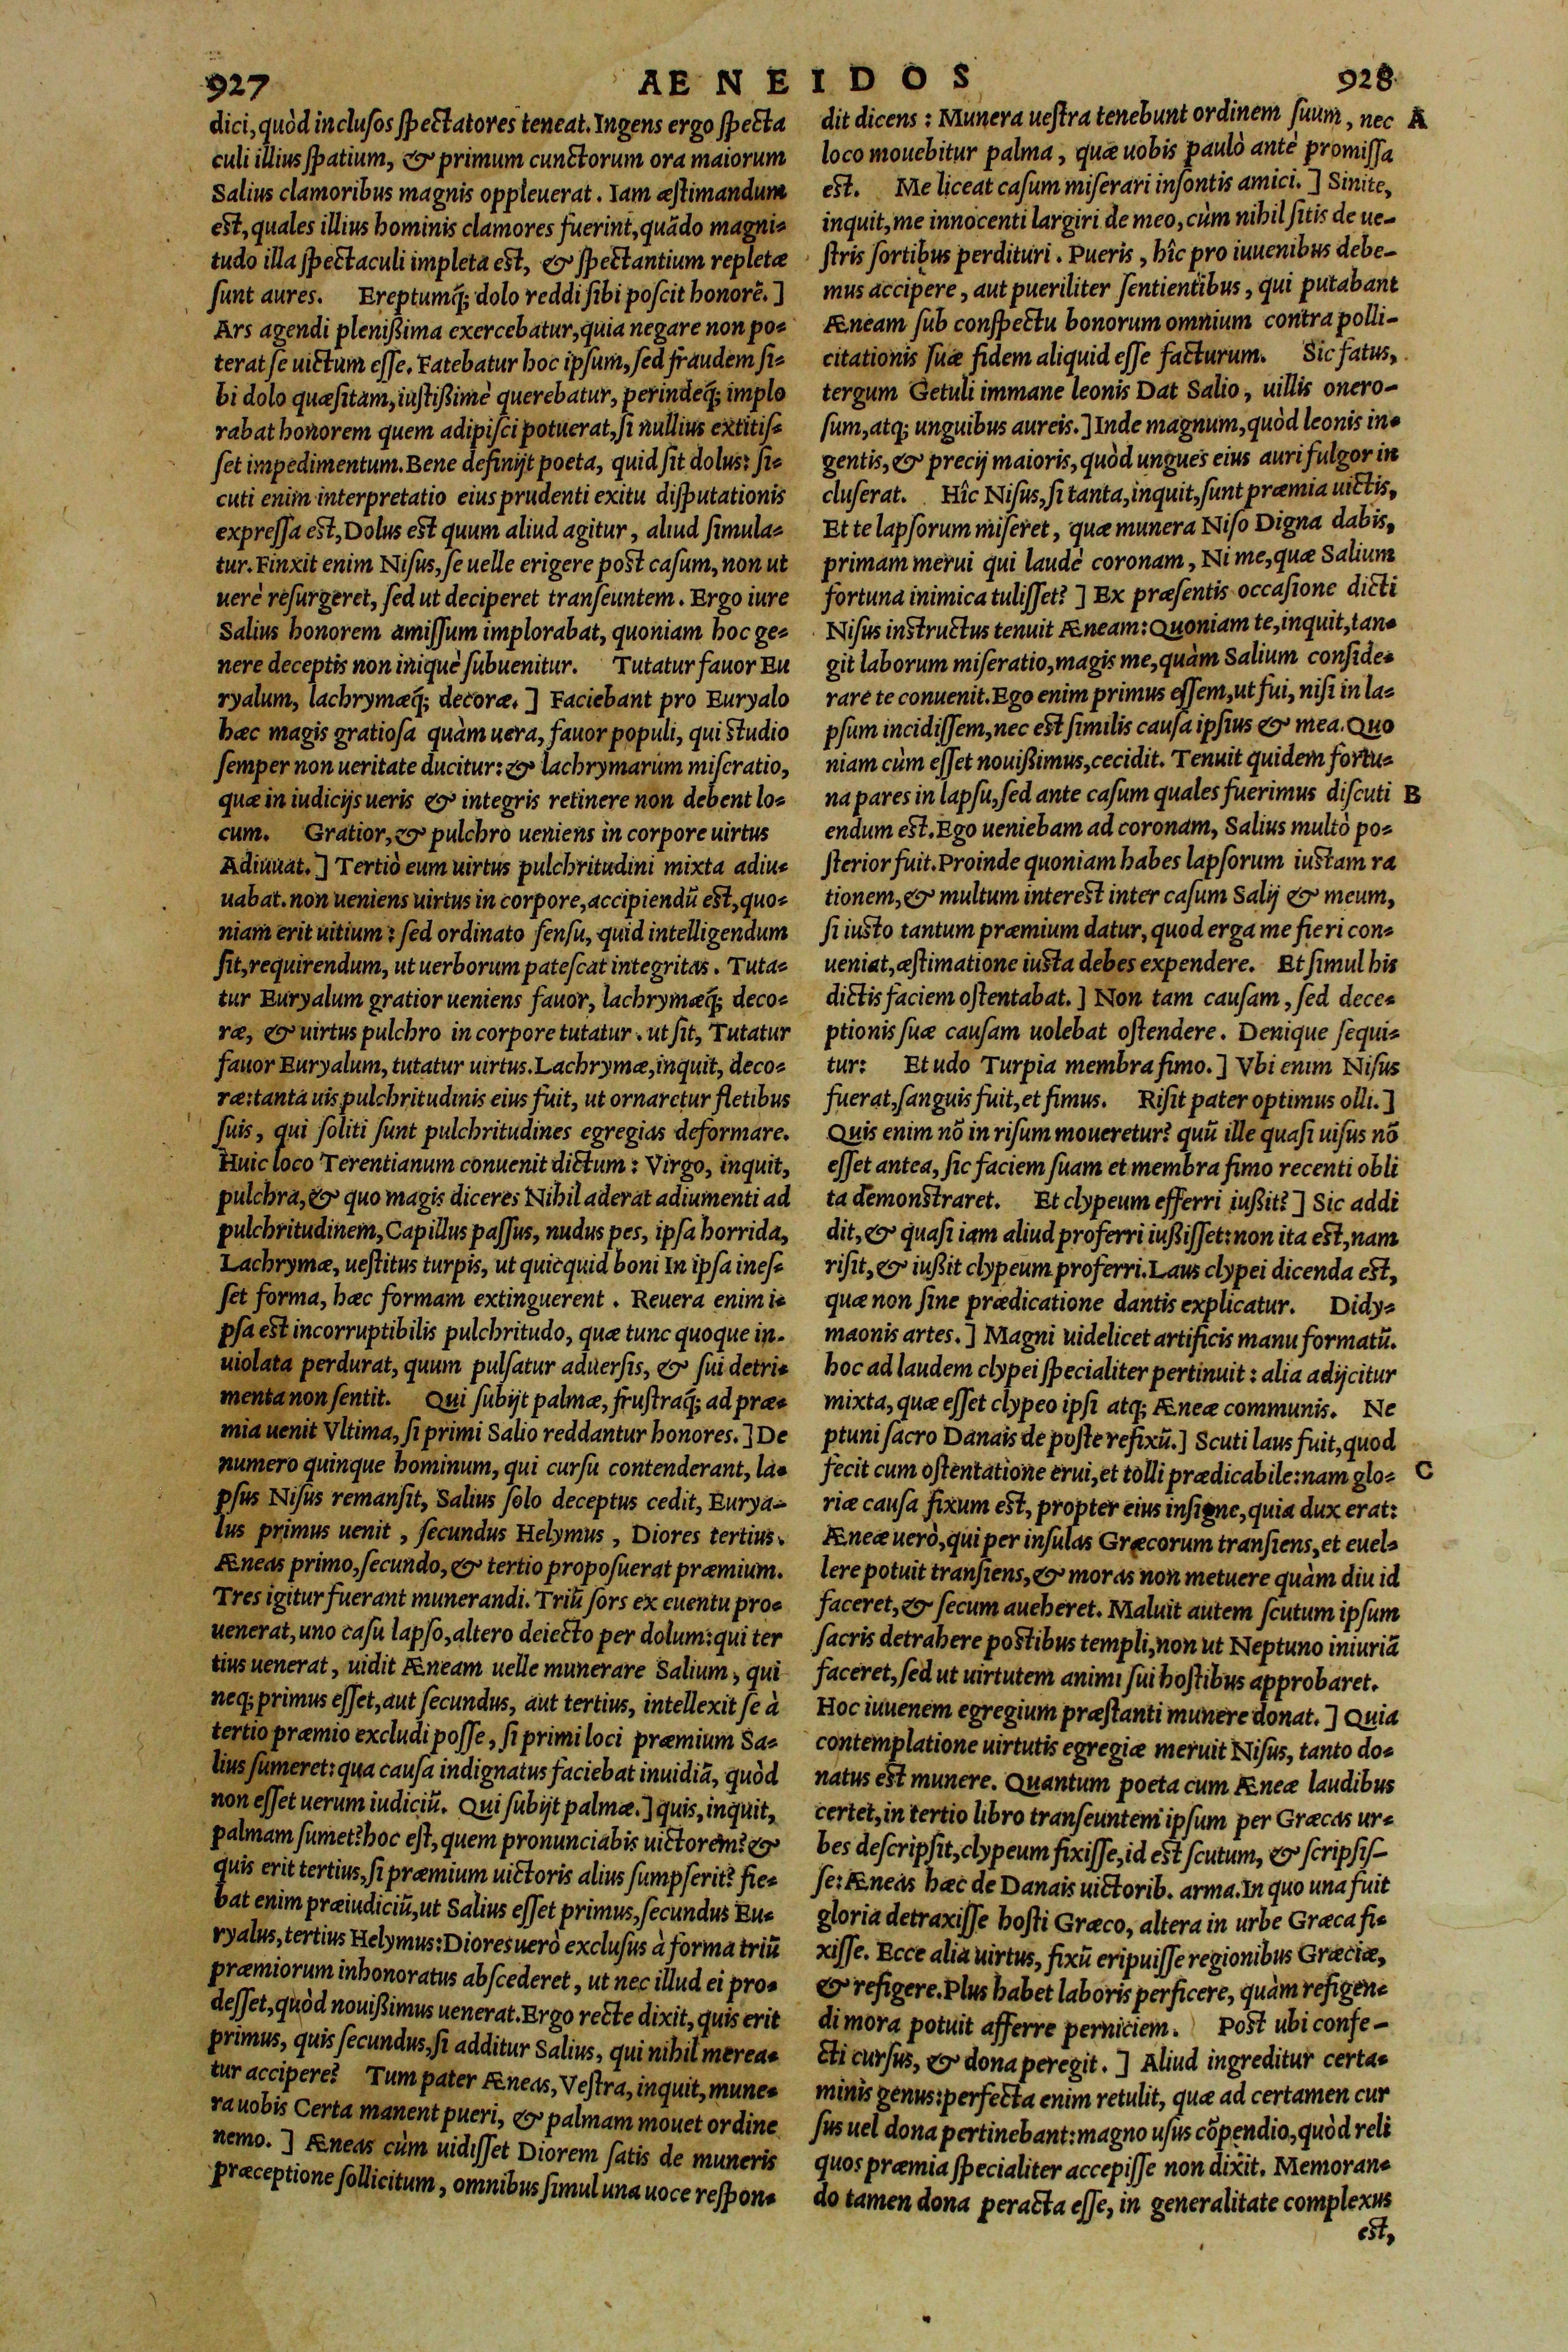 927
AENEIDOS
928
dici, quòd inclusos spectatores teneat. Ingens ergo specta
culi illius spatium, & primum cunctorum ora maiorum
Salius clamoribus magnis oppleuerat. Iam æstimandum
est, quales illius hominis clamores fuerint, quãdo magni-
tudo illa spectaculi impleta est, & spectantium repletæ
sunt aures. Ereptumq́; dolo reddi sibi poscit honorẽ. ]
Ars agendi plenißima exercebatur, quia negare non po-
terat se uictum esse. Fatebatur hoc ipsum, sed fraudem si-
bi dolo quæsitam, iustißimè querebatur, perindeq́; implo
rabat honorem quem adipisci potuerat, si nullius extitis-
set impedimentum. Bene definijt poeta, quid sit dolus: si-
cuti enim interpretatio eius prudenti exitu disputationis
expressa est, Dolus est quum aliud agitur, aliud simula-
tur. Finxit enim Nisus, se uelle erigere post casum, non ut
uerè resurgeret, sed ut deciperet transeuntem. Ergo iure
Salius honorem amissum implorabat, quoniam hoc ge-
nere deceptis non iniquè subuenitur. Tutatur fauor Eu
ryalum, lachrymæq́; decoræ. ] Faciebant pro Euryalo
hæc magis gratiosa quàm uera, fauor populi, qui studio
semper non ueritate ducitur: & lachrymarum miseratio,
quæ in iudicijs ueris & integris retinere non debent lo-
cum. Gratior, & pulchro ueniens in corpore uirtus
Adiuuat. ] Tertiò eum uirtus pulchritudini mixta adiu-
uabat. non ueniens uirtus in corpore, accipiendũ est, quo-
niam erit uitium: sed ordinato sensu, quid intelligendum
sit, requirendum, ut uerborum patescat integritas. Tuta-
tur Euryalum gratior ueniens fauor, lachrymæq́; deco-
ræ, & uirtus pulchro in corpore tutatur. ut sit, Tutatur
fauor Euryalum, tutatur uirtus. Lachrymæ, inquit, deco-
ræ: tanta uis pulchritudinis eius fuit, ut ornaretur fletibus
suis, qui soliti sunt pulchritudines egregias deformare.
Huic loco Terentianum conuenit dictum: Virgo, inquit,
pulchra, & quo magis diceres Nihil aderat adiumenti ad
pulchritudinem, Capillus passus, nudus pes, ipsa horrida,
Lachrymæ, uestitus turpis, ut quicquid boni In ipsa ines-
set forma, hæc formam extinguerent. Reuera enim i-
psa est incorruptibilis pulchritudo, quæ tunc quoque in-
uiolata perdurat, quum pulsatur aduersis, & sui detri-
menta non sentit. Qui subijt palmæ, frustraq́; ad præ-
mia uenit Vltima, si primi Salio reddantur honores. ] De
numero quinque hominum, qui cursu contenderant, la-
psus Nisus remansit, Salius solo deceptus cedit, Eurya-
lus primus uenit, secundus Helymus, Diores tertius.
Æneas primo, secundo, & tertio proposuerat præmium.
Tres igitur fuerant munerandi. Triũ sors ex euentu pro-
uenerat, uno casu lapso, altero deiecto per dolum: qui ter
tius uenerat, uidit Æneam uelle munerare Salium, qui
neq; primus esset, aut secundus, aut tertius, intellexit se à
tertio præmio excludi posse, si primi loci præmium Sa-
lius sumeret: qua causa indignatus faciebat inuidiã, quòd
non esset uerum iudiciũ. Qui subijt palmæ. ] quis, inquit,
palmam sumet? hoc est, quem pronunciabis uictorem? &
quis erit tertius, si præmium uictoris alius sumpserit? fie-
bat enim præiudiciũ, ut Salius esset primus, secundus Eu-
ryalus, tertius Helymus: Diores uerò exclusus à forma triũ
præmiorum inhonoratus abscederet, ut nec illud ei pro-
desset, quòd nouißimus uenerat. Ergo recte dixit, quis erit
primus, quis secundus, si additur Salius, qui nihil merea-
tur accipere? Tum pater Æneas, Vestra, inquit, mune-
ra uobis Certa manent pueri, & palmam mouet ordine
nemo. ] Æneas cùm uidisset Diorem satis de muneris
præceptione sollicitum, omnibus simul una uoce respon-
dit dicens: Munera uestra tenebunt ordinem suum, nec A
loco mouebitur palma, quæ uobis paulò antè promissa
est. Me liceat casum miserari insontis amici. ] Sinite,
inquit, me innocenti largiri de meo, cùm nihil sitis de ue-
stris sortibus perdituri. Pueris, hîc pro iuuenibus debe-
mus accipere, aut pueriliter sentientibus, qui putabant
Æneam sub conspectu bonorum omnium contra polli-
citationis suæ fidem aliquid esse facturum. Sic fatus,
tergum Getuli immane leonis Dat Salio, uillis onero-
sum, atq; unguibus aureis. ] Inde magnum, quòd leonis in-
gentis, & precij maioris, quòd ungues eius auri fulgor in
cluserat. Hîc Nisus, si tanta, inquit, sunt præmia uictis,
Et te lapsorum miseret, quæ munera Niso Digna dabis,
primam merui qui laudè coronam, Ni me, quæ Salium
fortuna inimica tulisset? ] Ex præsentis occasione dicti
Nisus instructus tenuit Æneam: Quoniam te, inquit, tan-
git laborum miseratio, magis me, quàm Salium conside-
rare te conuenit. Ego enim primus essem, ut fui, nisi in la-
psum incidissem, nec est similis causa ipsius & mea. Quo
niam cùm esset nouißimus, cecidit. Tenuit quidem fortu-
na pares in lapsu, sed ante casum quales fuerimus discuti B
endum est. Ego ueniebam ad coronam, Salius multò po-
sterior fuit. Proinde quoniam habes lapsorum iustam ra
tionem, & multum interest inter casum Salij & meum,
si iusto tantum præmium datur, quod erga me fieri con-
ueniat, æstimatione iusta debes expendere. Et simul his
dictis faciem ostentabat. ] Non tam causam, sed dece-
ptionis suæ causam uolebat ostendere. Denique sequi-
tur: Et udo Turpia membra fimo. ] Vbi enim Nisus
fuerat, sanguis fuit, et fimus. Risit pater optimus olli. ]
Quis enim nõ in risum moueretur? quũ ille quasi uisus nõ
esset antea, sic faciem suam et membra fimo recenti obli
ta demonstraret. Et clypeum efferri iußit? ] Sic addi
dit, & quasi iam aliud proferri iußisset: non ita est, nam
risit, & iußit clypeum proferri. Laus clypei dicenda est,
quæ non sine prædicatione dantis explicatur. Didy-
maonis artes. ] Magni uidelicet artificis manu formatũ.
hoc ad laudem clypei specialiter pertinuit: alia adijcitur
mixta, quæ esset clypeo ipsi atq; Æneæ communis. Ne
ptuni sacro Danais de poste refixũ. ] Scuti laus fuit, quod
fecit cum ostentatione erui, et tolli prædicabile: nam glo- C
riæ causa fixum est, propter eius insigne, quia dux erat:
Æneæ uerò, qui per insulas Græcorum transiens, et euel-
lere potuit transiens, & moras non metuere quàm diu id
faceret, & secum aueheret. Maluit autem scutum ipsum
sacris detrahere postibus templi, non ut Neptuno iniuriã
faceret, sed ut uirtutem animi sui hostibus approbaret.
Hoc iuuenem egregium præstanti munere donat. ] Quia
contemplatione uirtutis egregiæ meruit Nisus, tanto do-
natus est munere. Quantum poeta cum Æneæ laudibus
certet, in tertio libro transeuntem ipsum per Græcas ur-
bes descripsit, clypeum fixisse, id est scutum, & scripsis-
se: Æneas hæc de Danais uictorib. arma. In quo una fuit
gloria detraxisse hosti Græco, altera in urbe Græca fi-
xisse. Ecce alia uirtus, fixũ eripuisse regionibus Græciæ,
& refigere. Plus habet laboris perficere, quàm refigen-
di mora potuit afferre perniciem. Post ubi confe-
cti cursus, & dona peregit. ] Aliud ingreditur certa-
minis genus: perfecta enim retulit, quæ ad certamen cur
sus uel dona pertinebant: magno usus cõpendio, quòd reli
quos præmia specialiter accepisse non dixit. Memoran-
do tamen dona peracta esse, in generalitate complexus
est,